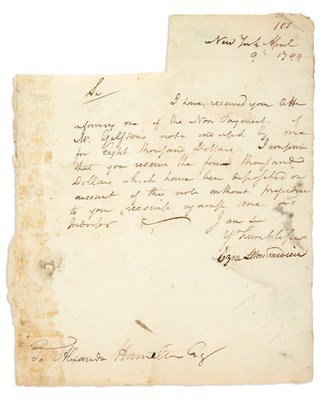 New York April
9th 1799
Sir
I have received your letter
informing me of the Non Payment of
Mr. Gelston's note endorsed by me
for Eight thousand Dollars. I consent
that you receive the four thousand
Dollars which have been deposited on
account of this note without prejudice
to your recourse against me as
Indorser
I am &
Yr humble Ser
Ezra L'Hommedieu
To Alexander Hamilton Esq